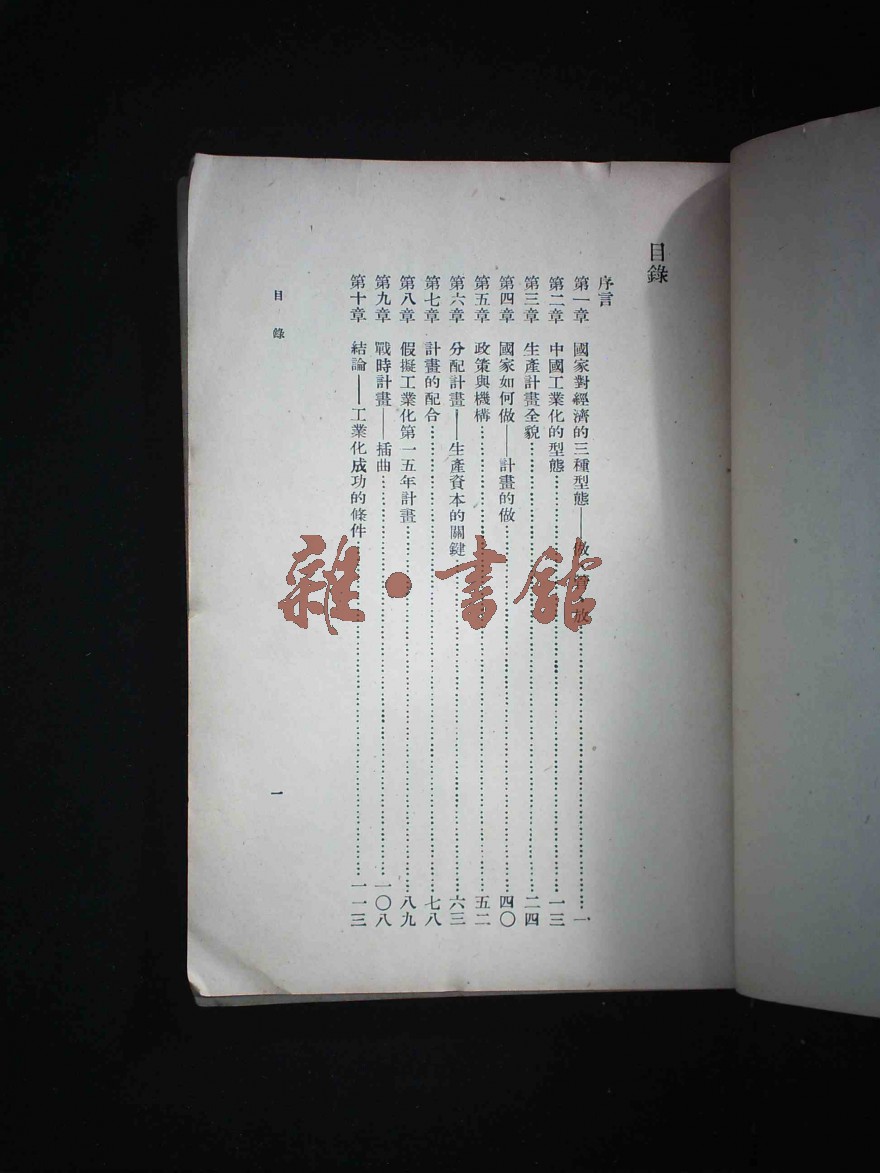 目錄
序言
第一章 國家對經濟的三種型態——做、管、放⋯⋯一
第二章 中國工業化的型態⋯⋯一三
第三章 生產計畫全貌⋯⋯二四
第四章 國家如何做——計畫的做⋯⋯四〇
第五章 政策與機構⋯⋯五二
第六章 分配計畫——生產資本的關鍵⋯⋯六三
第七章 計畫的配合⋯⋯七八
第八章 假擬工業化第一五年計畫⋯⋯八九
第九章 戰時計畫——插曲⋯⋯一〇八
第十章 結論——工業化成功的條件⋯⋯一一三
目錄 一
雜·書館